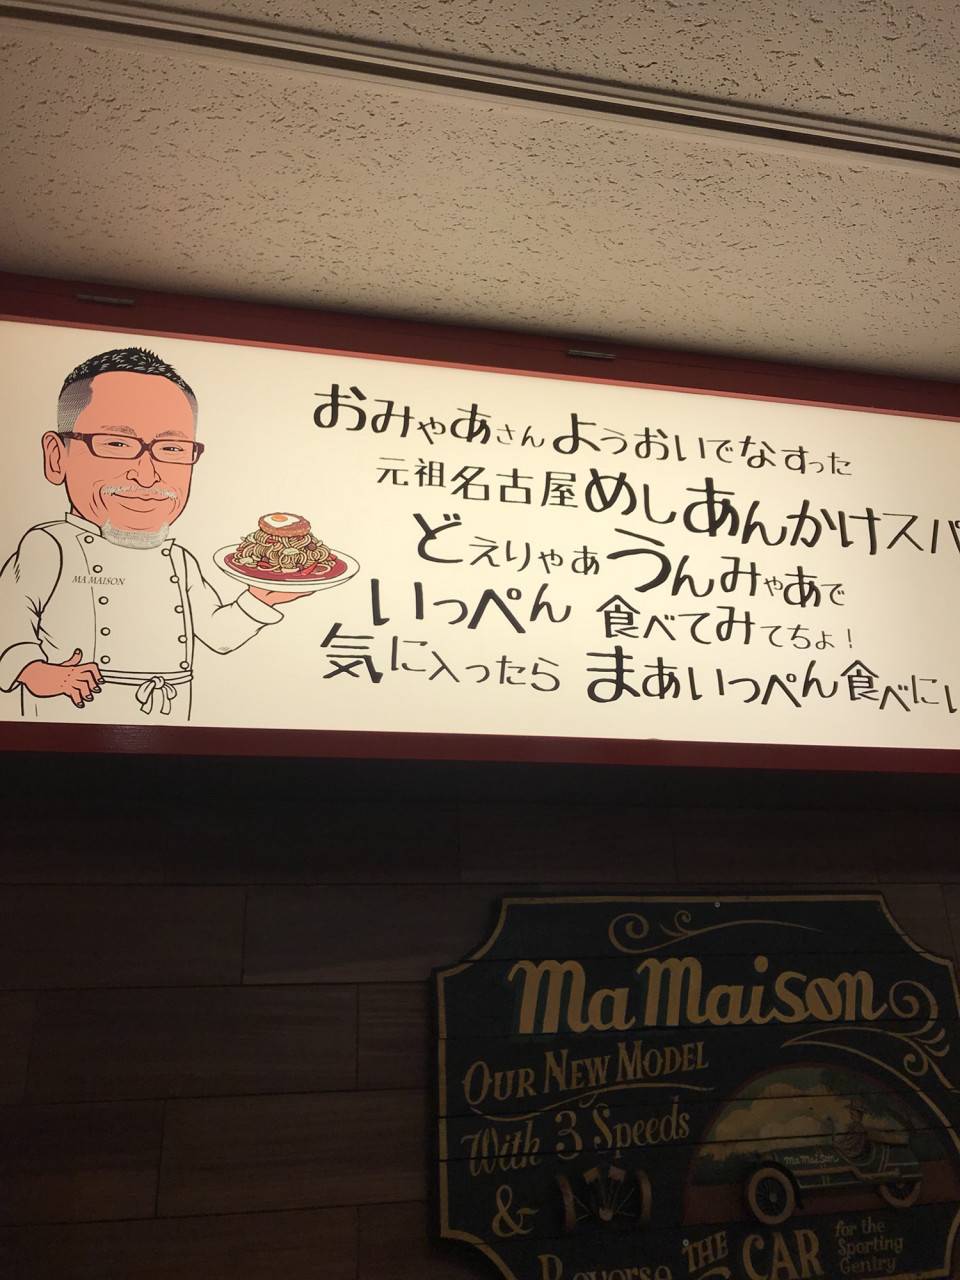 おみゃあさんようおいでなすった
元祖名古屋めしあんかけスパ
どえりゃあうんみゃあで
いっぺん 食べてみてちょ!
気に入ったら まあいっぺん食べにい
MA MAISON
Ma Maison
OUR NEW MODEL
With 3 Speeds
&
Reverse
THE CAR
for the
Sporting
Gentry
Ma Maison